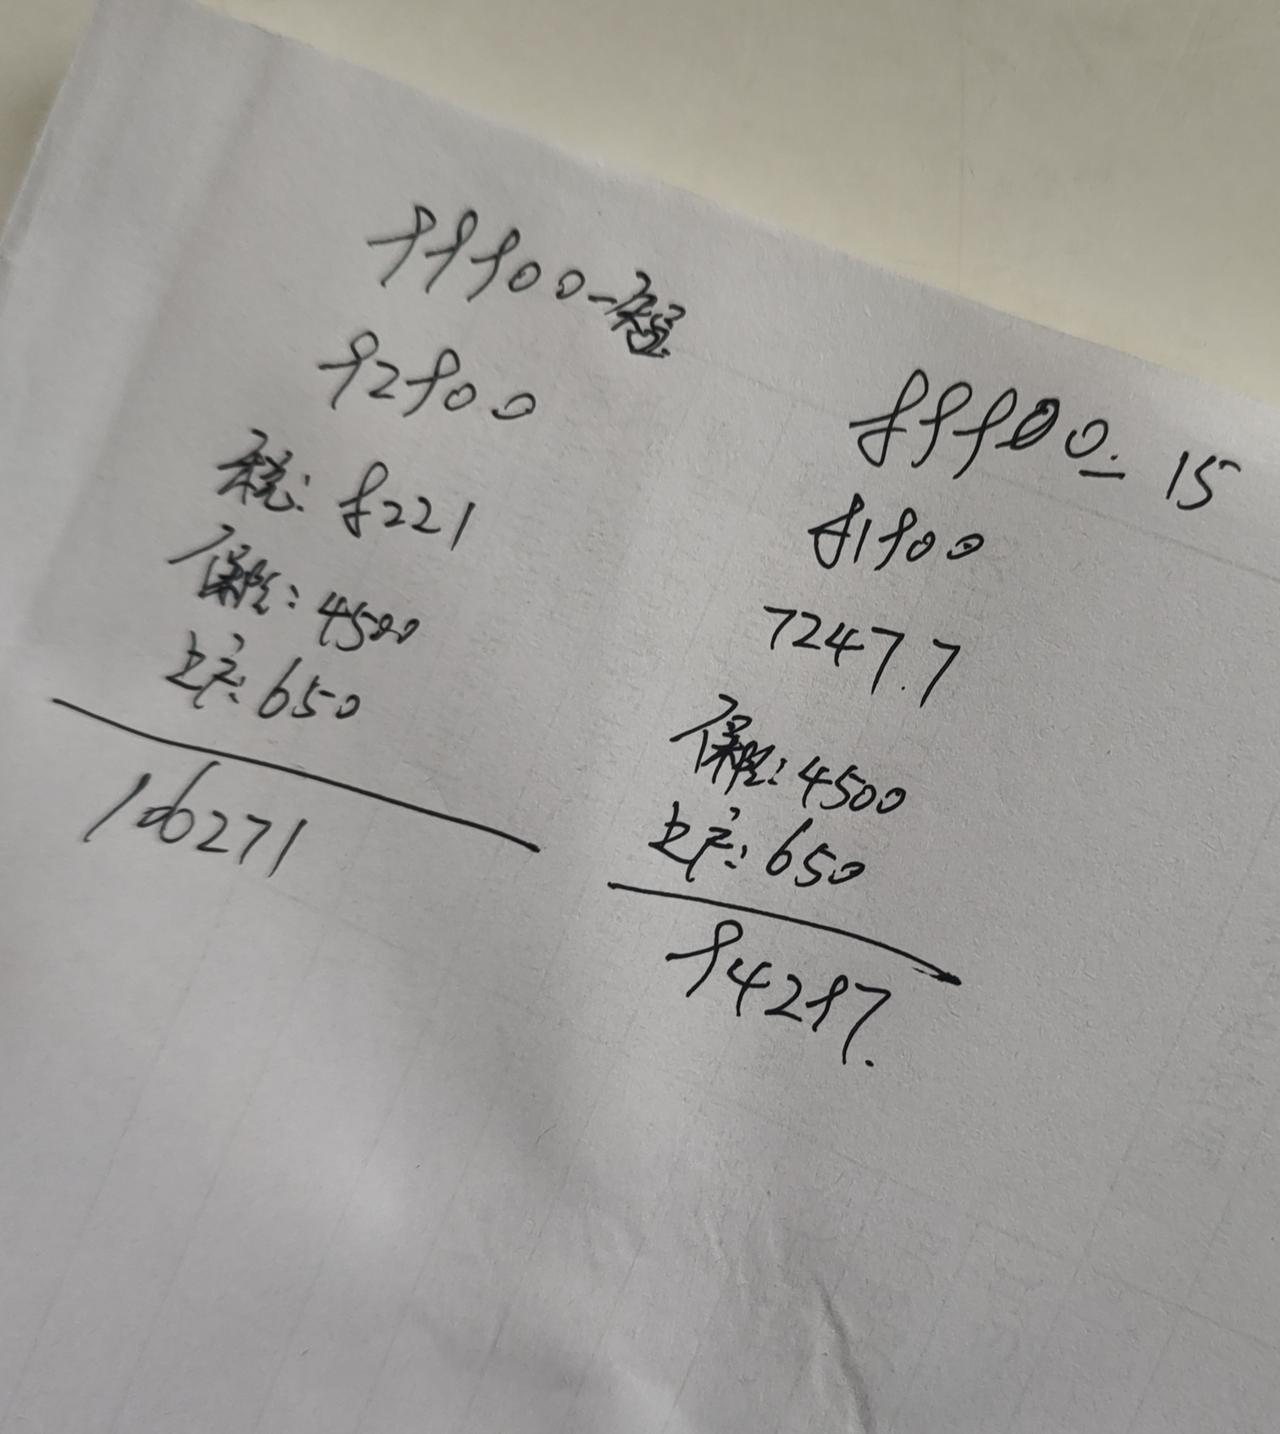 99900-
92900
税: 8221
保险: 4500
上户: 650
106271
89900. - 15
81900
7247.7
保险: 4500
上户: 650
94297.